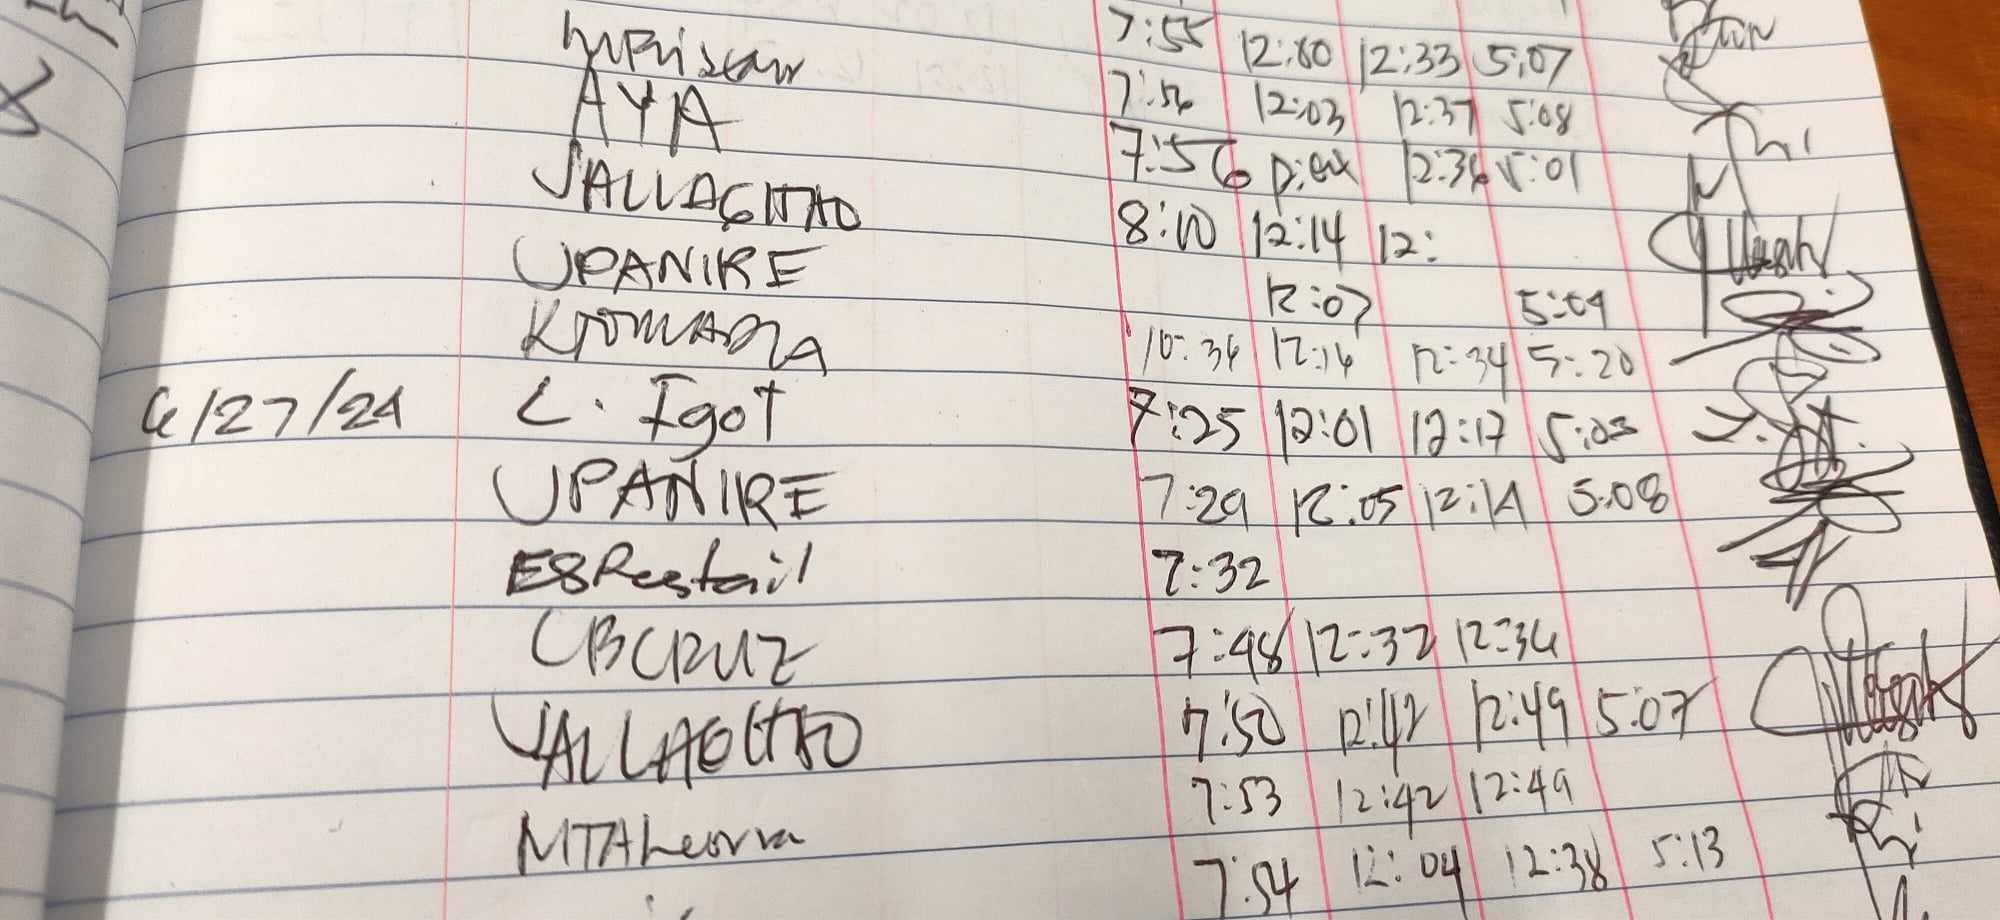 7:55 12:00 12:33 5:07
7:56 12:03 12:37 5:08
AYA 7:56 12:36 5:01
JALLAGITHO 8:10 12:14 12:
UPANIRE 12:07 5:04
KTOMADRA 10:34 12:16 12:34 5:20
6/27/24 L. Igot 7:25 12:01 12:17 5:03
UPANIRE 7:29 12:05 12:14 5:08
ESRestail 7:32
CBCRUZ 7:48 12:32 12:36
JALLAGITHO 7:50 12:42 12:49 5:07
7:53 12:42 12:49
7:54 12:04 12:38 5:13